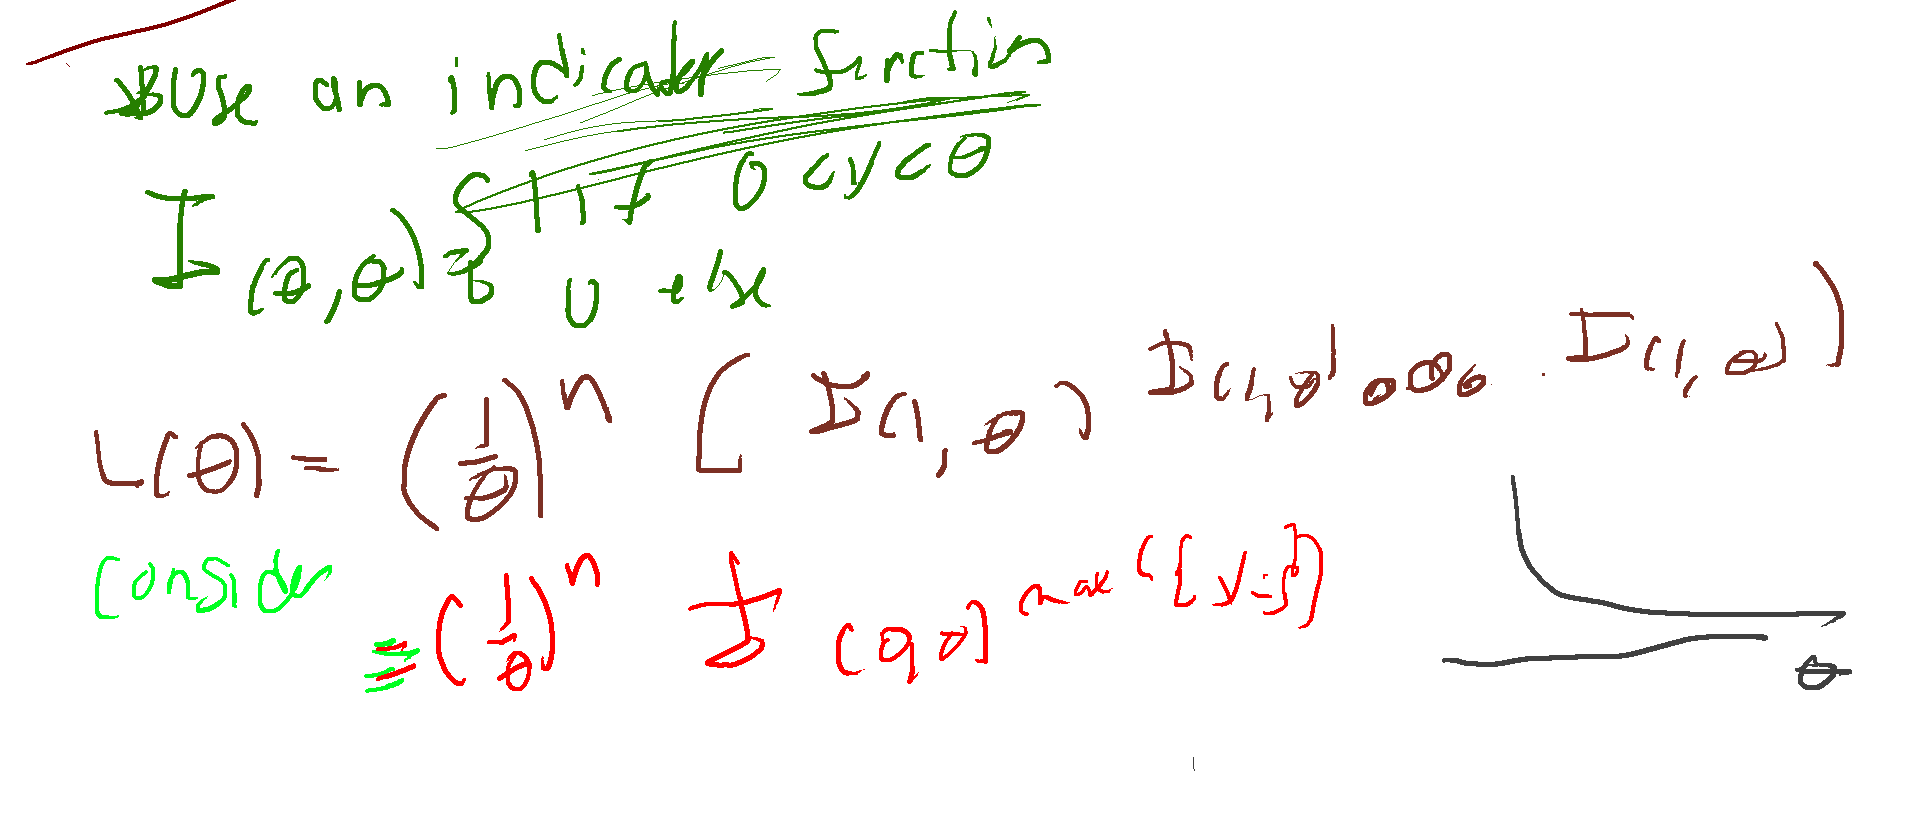 Use an indicator function
I (θ, θ) = { 1 if 0 < y < θ
0 else
L(θ) = (1/θ)^n [ I(1, θ) I(1, θ) ... I(1, θ) )
Consider
= (1/θ)^n I (0, θ) max({y_i})
θ